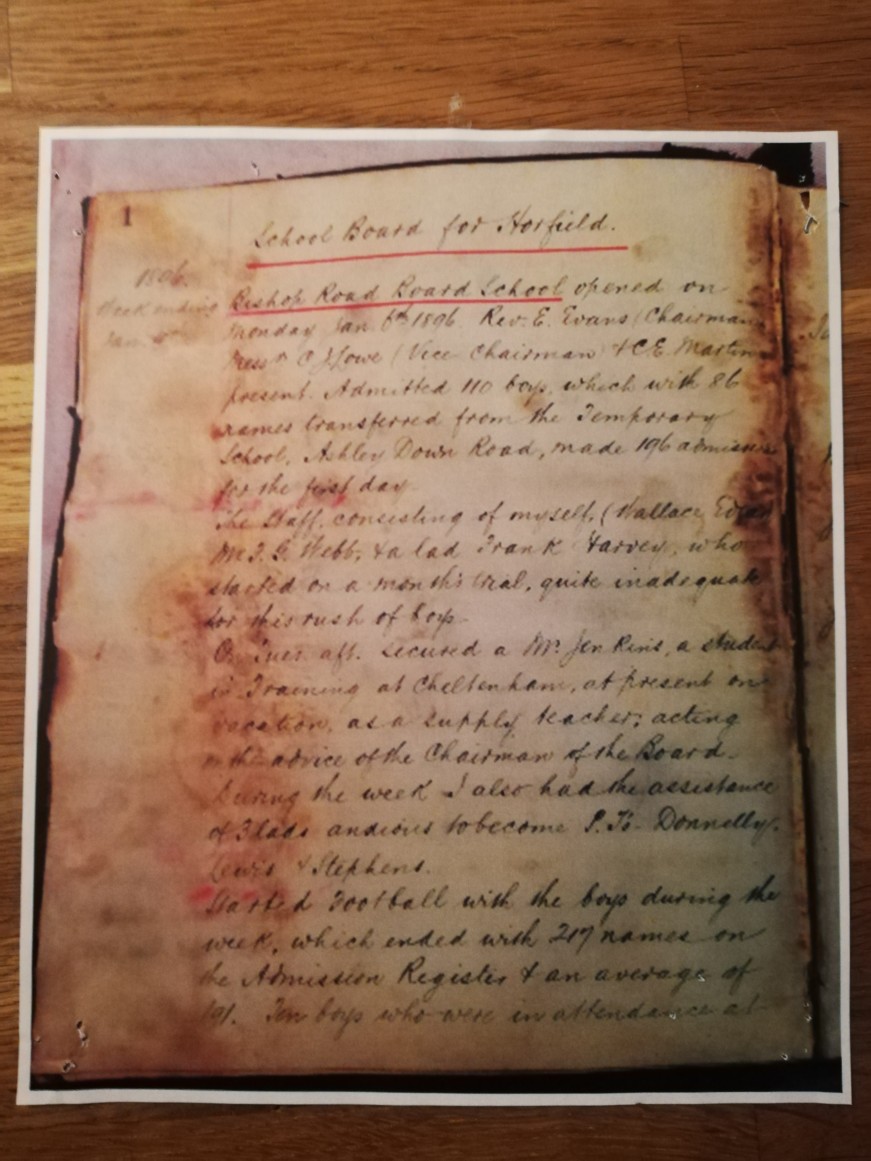 1
School Board for Horfield.
1896.
Week ending
Jan.
Bishop Road Board School opened on
Monday Jan. 6th 1896. Rev. E. Evans (Chairman
Messrs C J Lowe (Vice Chairman) & C.E. Martin
present. Admitted 110 boys, which with 86
names transferred from the Temporary
School, Ashley Down Road, made 196 admissions
for the first day.
The Staff, consisting of myself, (Wallace
Mr. J. G. Webb, & a lad Frank Harvey, who
started on a month's trial, quite inadequate
for this rush of boys.
On Tues. aft. secured a Mr. Jenkins, a student
in Training at Cheltenham, at present on
vacation, as a supply teacher; acting
on the advice of the Chairman of the Board.
During the week I also had the assistance
of 3 lads anxious to become P.Ts. Donnelly,
Lewis & Stephens.
Started Football with the boys during the
week, which ended with 217 names on
the Admission Register & an average of
191. Ten boys who were in attendance at